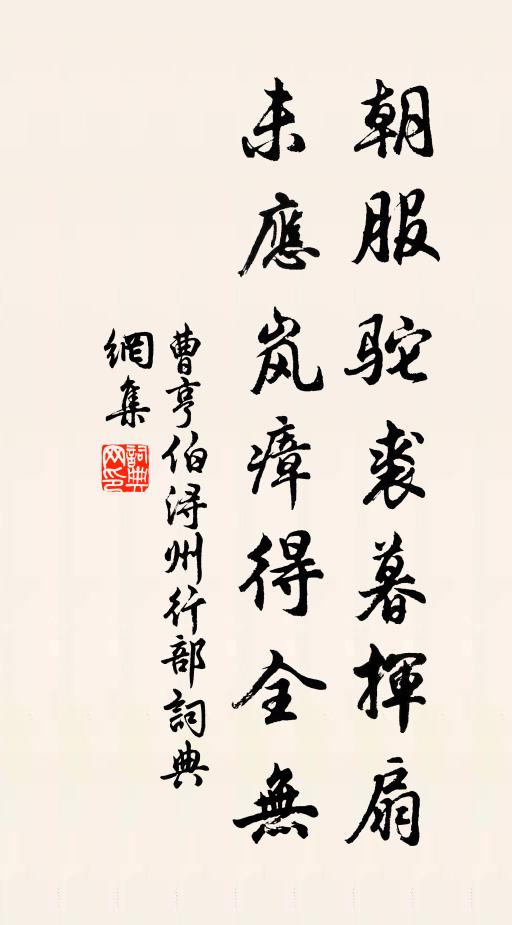 朝服驼裘暮揮扇
未應岚瘴得全無
曹亨伯浔州行部詞典
網集
詞典網印